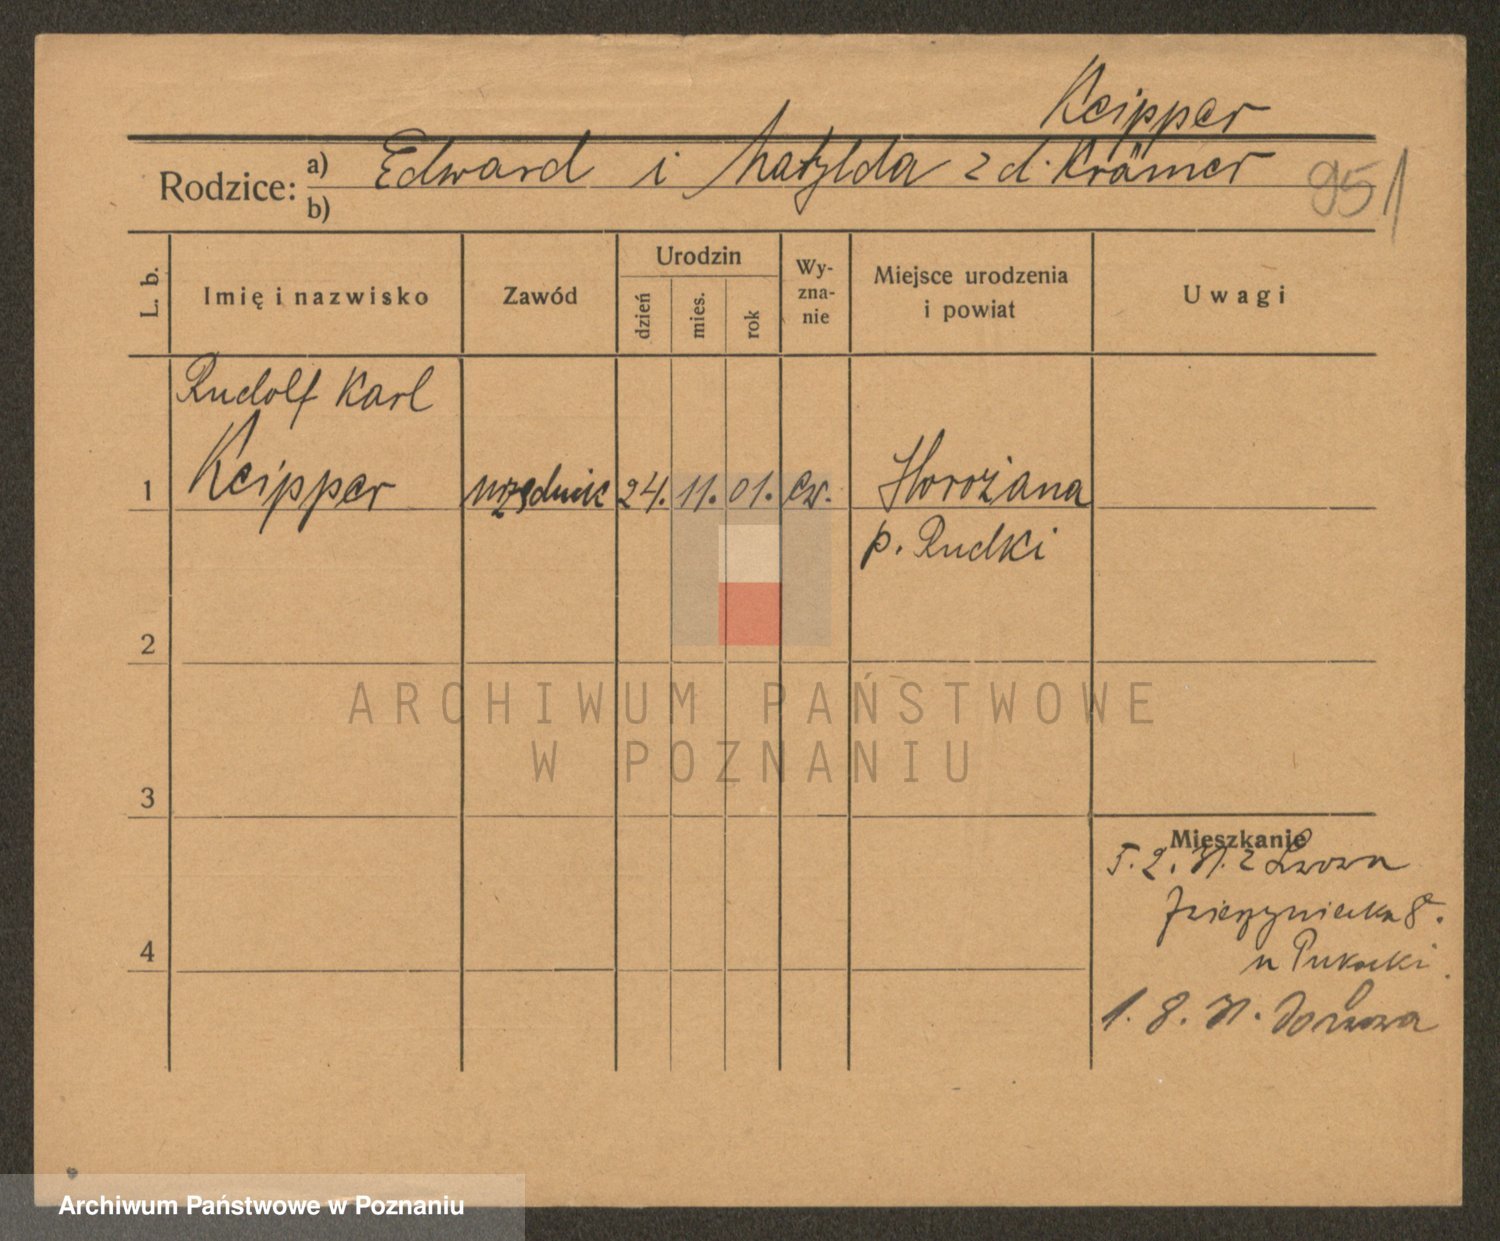 Keipper
Rodzice: a) Edward i Matylda z d. Krämer
b)
951
L. b.
Imię i nazwisko
Zawód
Urodzin
dzień
mies.
rok
Wy-
zna-
nie
Miejsce urodzenia
i powiat
Uwagi
Rudolf Karl
1 Keipper urzędnik 24. 11. 01. ew. Horożana
p. Rudki
2
3
4
Mieszkanie
5. 2. 31. z Lwowa
8.
u Pukacki
1. 8. 31. do Lwowa
ARCHIWUM PAŃSTWOWE
W POZNANIU
Archiwum Państwowe w Poznaniu